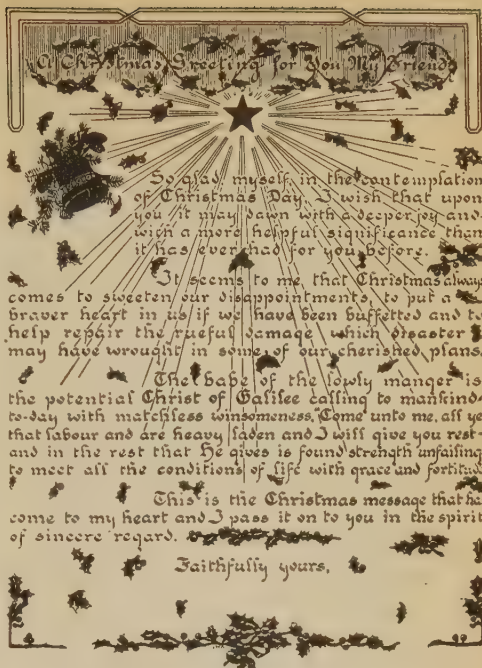 A Christmas Greeting for You My Friend
So glad myself in the contemplation
of Christmas Day, I wish that upon
you it may dawn with a deeper joy and
with a more helpful significance than
it has ever had for you before.
It seems to me, that Christmas always
comes to sweeten our disappointments, to put a
braver heart in us if we have been buffetted and to
help repair the rueful damage which disaster
may have wrought in some of our cherished plans.
The babe of the lowly manger is
the potential Christ of Galilee calling to mankind
to-day with matchless winsomeness, "Come unto me, all ye
that labour and are heavy laden and I will give you rest"
and in the rest that He gives is found strength unfailing
to meet all the conditions of life with grace and fortitude
This is the Christmas message that ha
come to my heart and I pass it on to you in the spirit
of sincere regard.
Faithfully yours,